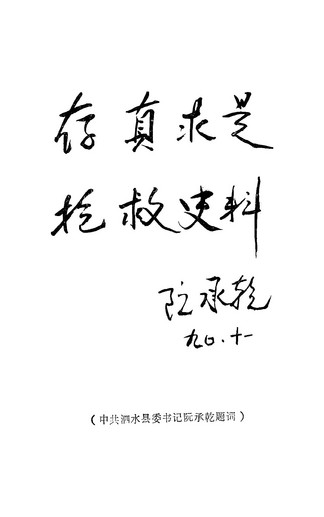 存真求是
抢救史料
阮承乾
九〇.十一
（中共泗水县委书记阮承乾题词）